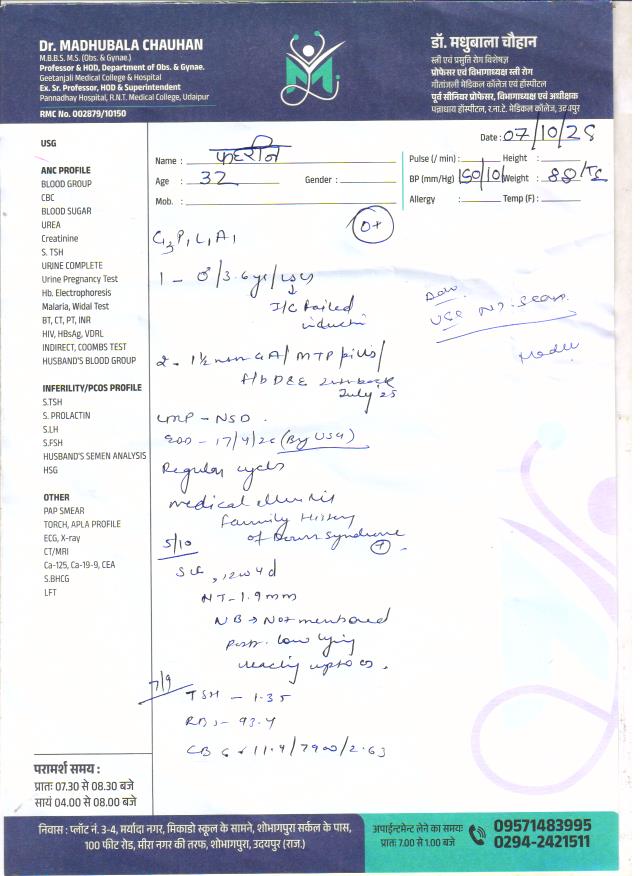 Dr. MADHUBALA CHAUHAN
M.B.B.S. M.S. (Obs. & Gynae.)
Professor & HOD, Department of Obs. & Gynae.
Geetanjali Medical College & Hospital
Ex. Sr. Professor, HOD & Superintendent
Pannadhay Hospital, R.N.T. Medical College, Udaipur
RMC No. 002879/10150
डॉ. मधुबाला चौहान
स्त्री एवं प्रसूति रोग विशेषज्ञ
प्रोफेसर एवं विभागाध्यक्ष स्त्री रोग
गीतांजली मेडिकल कॉलेज एवं हॉस्पीटल
पूर्व सीनियर प्रोफेसर, विभागाध्यक्ष एवं अधीक्षक
पन्नाधाय हॉस्पीटल, र.ना.टे. मेडिकल कॉलेज, उदयपुर
Date : 07/10/25
Name :
Age : 32 Gender :
Mob. :
Pulse (/ min) : Height :
BP (mm/Hg) Weight :
Allergy : Temp (F) :
USG
ANC PROFILE
BLOOD GROUP
CBC
BLOOD SUGAR
UREA
Creatinine
S. TSH
URINE COMPLETE
Urine Pregnancy Test
Hb. Electrophoresis
Malaria, Widal Test
BT, CT, PT, INR
HIV, HBsAg, VDRL
INDIRECT, COOMBS TEST
HUSBAND'S BLOOD GROUP
INFERILITY/PCOS PROFILE
S.TSH
S. PROLACTIN
S.LH
S.FSH
HUSBAND'S SEMEN ANALYSIS
HSG
OTHER
PAP SMEAR
TORCH, APLA PROFILE
ECG, X-ray
CT/MRI
Ca-125, Ca-19-9, CEA
S.BHCG
LFT
O+
G3P1L1A1
1 - ♂/3.6yr/LSCS
↓
I/C failed
induction
USG NT. Scan
2 - 1½ mon GA/MTP pills/
f/b D&E
July 25
LMP - NSD.
EDD - 17/4/26 (By USG)
Regular cycles
medical illness
Family History
of Down Syndrome
(+).
5/10
SLF, 12w4d
NT-1.9mm
NB → Not mentioned
Post. low lying
reaching upto os.
7/9
TSH - 1.35
RBS - 93.4
CBC - 11.4/7900/2.63
परामर्श समय :
प्रातः 07.30 से 08.30 बजे
सायं 04.00 से 08.00 बजे
निवास : प्लॉट नं. 3-4, मर्यादा नगर, मिकाडो स्कूल के सामने, शोभागपुरा सर्कल के पास,
100 फीट रोड, मीरा नगर की तरफ, शोभागपुरा, उदयपुर (राज.)
अपाईन्टमेन्ट लेने का समयः
प्रातः 7.00 से 1.00 बजे
09571483995
0294-2421511